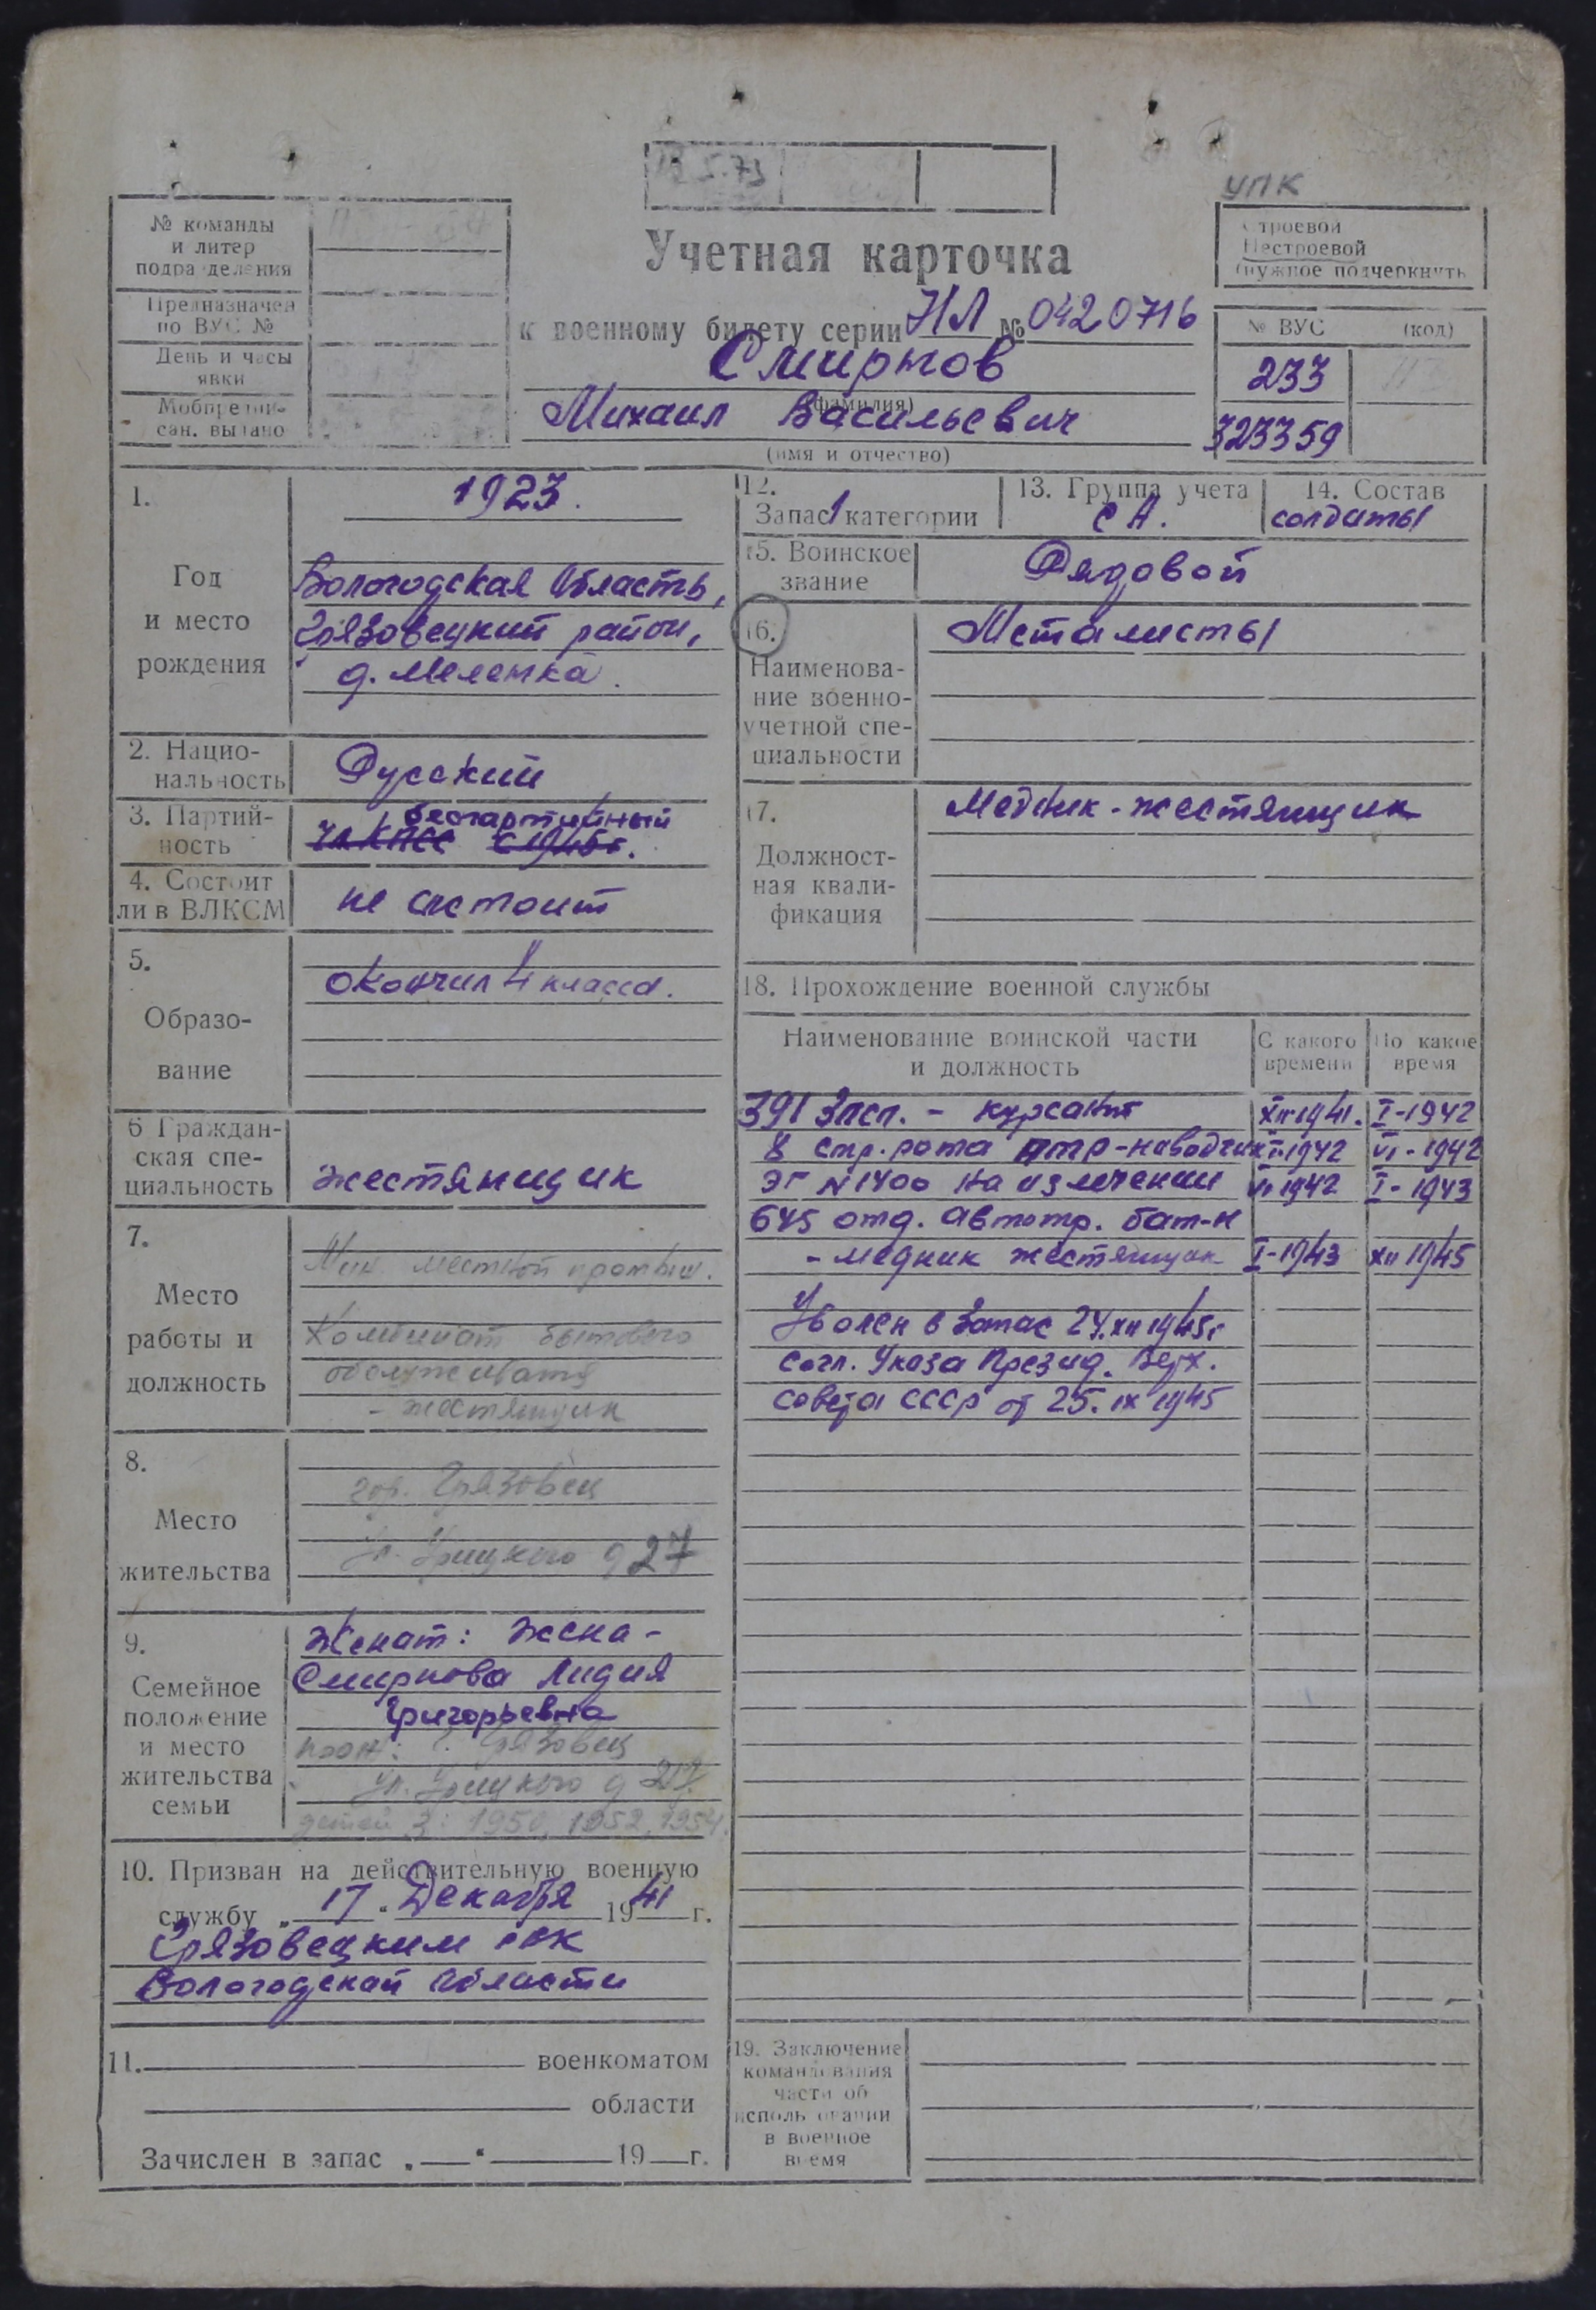 5.73
УПК
№ команды
и литер
подразделения
Предназначен
по ВУС №
День и часы
явки
Мобпредпи-
сан. выдано
Учетная карточка
к военному билету серии НЛ № 0420716
Смирнов
(фамилия)
Михаил Васильевич
(имя и отчество)
Строевой
Нестроевой
(нужное подчеркнуть
№ ВУС (код)
233
323359
1.
Год
и место
рождения
1923.
Вологодская область,
Грязовецкий район,
д. Меленка.
2. Нацио-
нальность
Русский
3. Партий-
ность
беспартийный
чл КПСС с 1945г.
4. Состоит
ли в ВЛКСМ
не состоит
5.
Образо-
вание
Окончил 4 класса.
6 Граждан-
ская спе-
циальность
жестянщик
7.
Место
работы и
должность
Мин. местной промыш.
Комбинат бытового
обслуживания
- жестянщик
8.
Место
жительства
гор. Грязовец
ул. Урицкого д 27
9.
Семейное
положение
и место
жительства
семьи
Женат: жена -
Смирнова Лидия
Григорьевна
прож: г. Грязовец
ул. Урицкого д 27
детей 3: 1950, 1952, 1954.
10. Призван на действительную военную
службу „17“ Декабря 1941 г.
Грязовецким РВК
Вологодской области
11. военкоматом
области
Зачислен в запас „ “ 19 г.
12.
Запас 1 категории
13. Группа учета
СА.
14. Состав
солдаты
15. Воинское
звание
Рядовой
16.
Наименова-
ние военно-
учетной спе-
циальности
Металисты
17.
Должност-
ная квали-
фикация
Медник-жестянщик
18. Прохождение военной службы
Наименование воинской части
и должность
С какого
времени
По какое
время
391 Зпсп. - курсант XII-1941. I-1942
8 стр. рота ПТР-наводчик I-1942 VI-1942
ЭГ N1400 на излечении VI 1942 I-1943
645 отд. автотр. бат-н
- медник жестянщик I-1943 XII 1945
Уволен в запас 24.XII 1945г
согл. Указа Презид. Верх.
Совета СССР от 25. IX 1945
19. Заключение
командования
части об
использовании
в военное
время